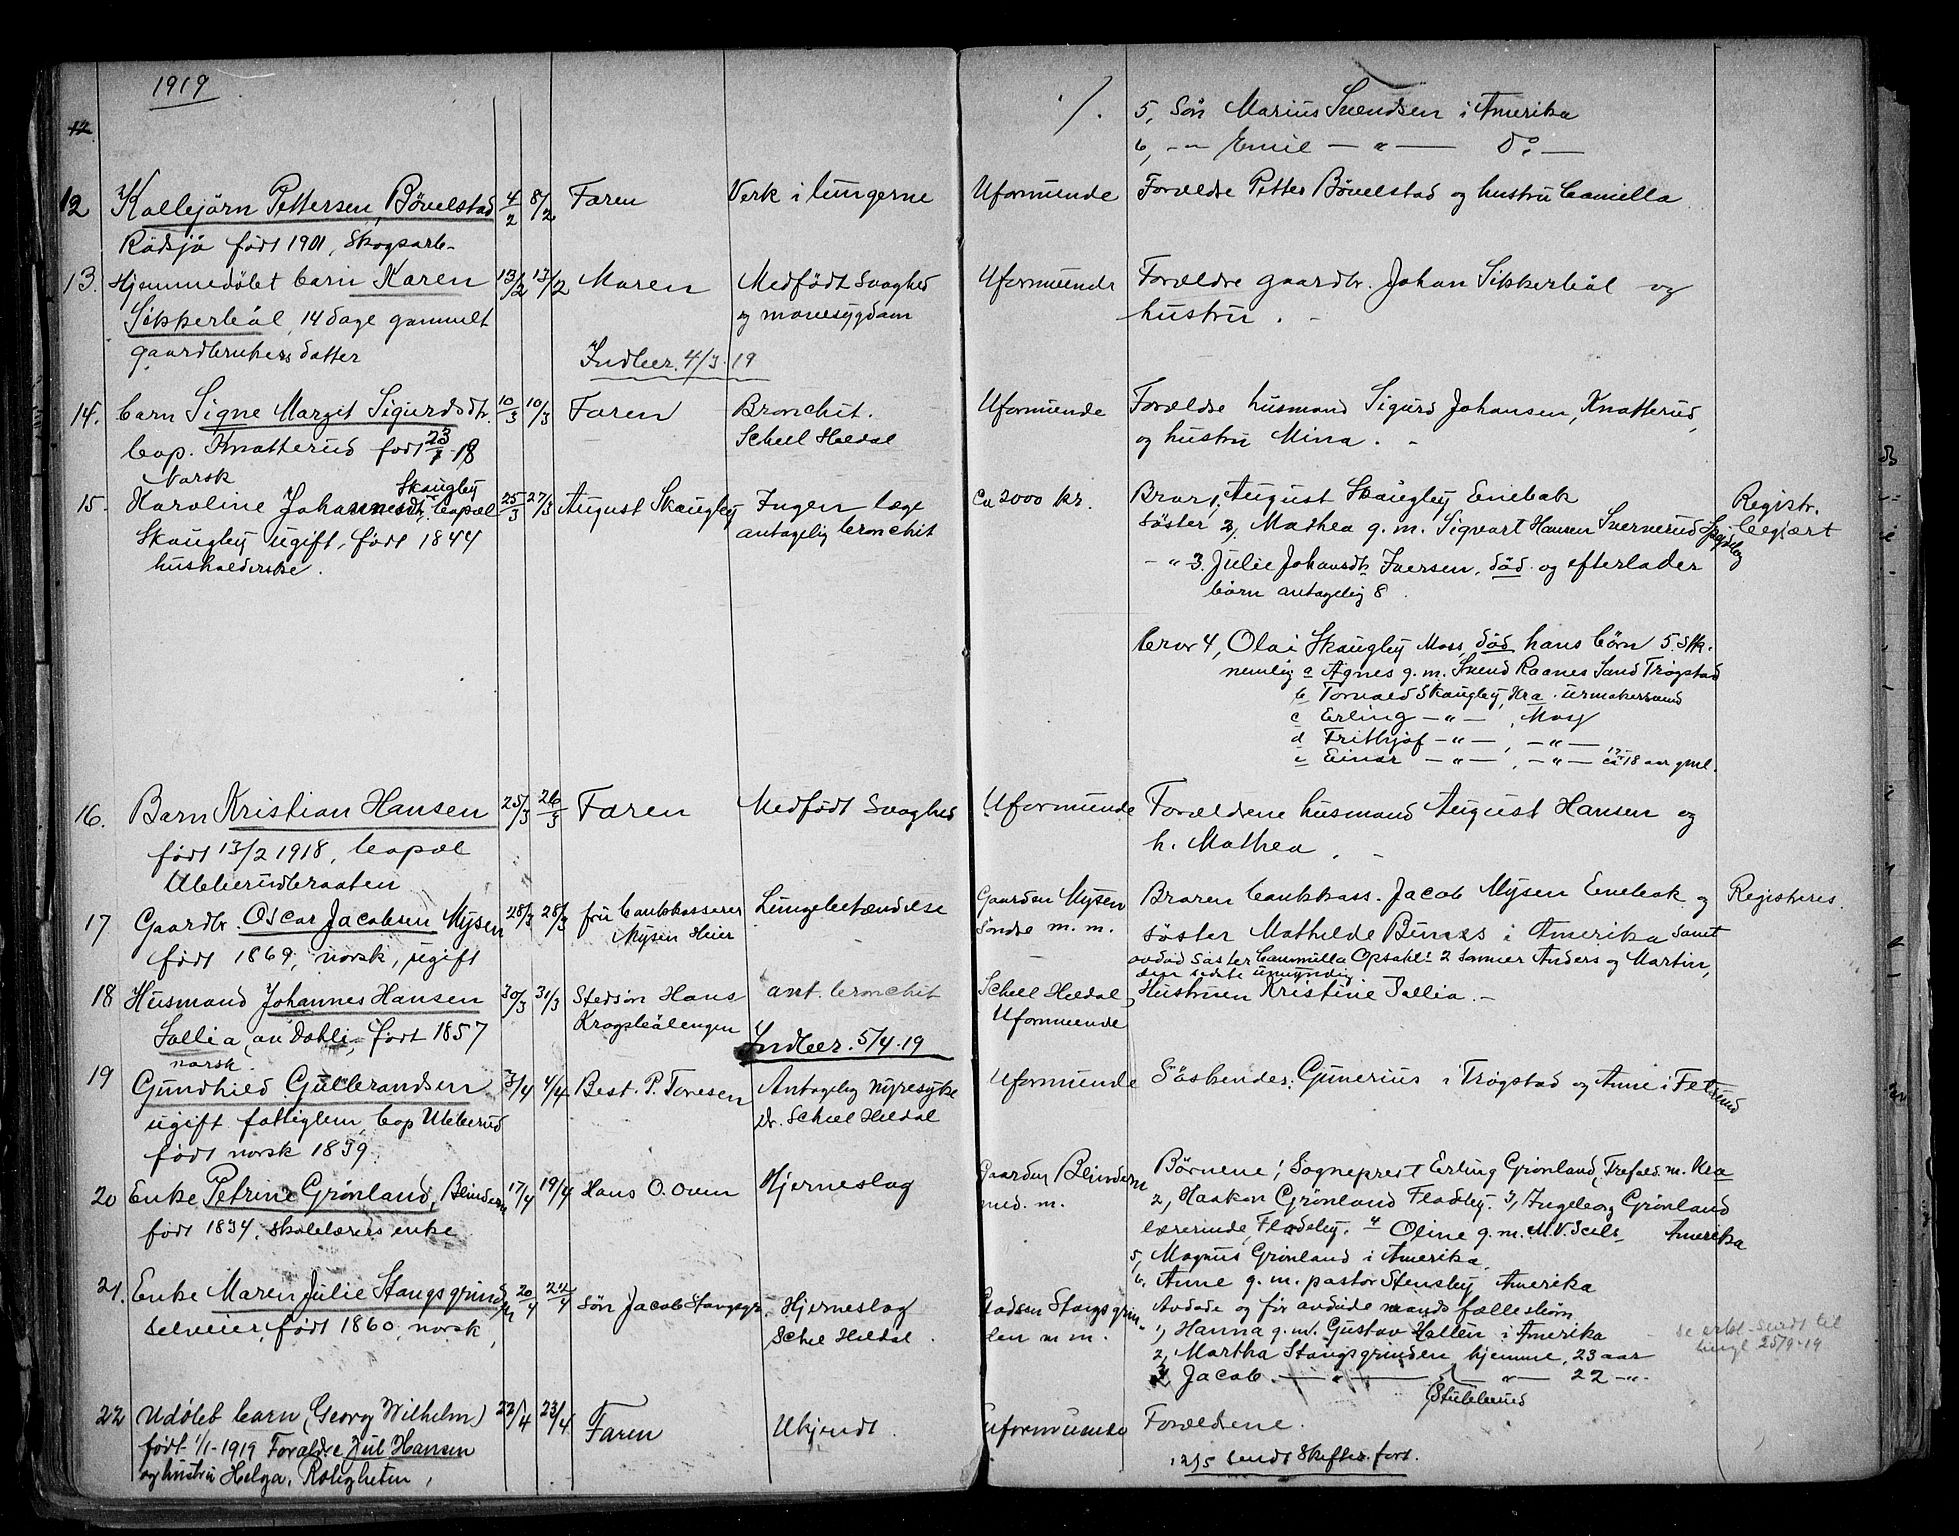 1919
5, Søn Marius Svendsen i Amerika
6, -"- Emil — " — Do —
12 Kallejörn Pettersen, Bövelstad 4/2 8/2 Faren Verk i lungerne Uformuende Forældre Petter Bövelstad og hustru Camilla
Rådsjø født 1901, Skogsarb-
13. Hjemmedøbt barn Karen 13/2 17/2 Maren Medfödt Svaghed Uformuende Forældre gaardbr. Johan Sikkerbøl og
Sikkerbøl, 14 dage gammelt og mavesygdom hustru. -
gaardbrukers datter Indber. 4/3. 19
14. barn Signe Margit Sigurdsdtr. 10/3 10/3 Faren Bronchit. Uformuende Forældre husmand Sigurd Johansen, Knatterud,
bop. Knatterud født 23/1 18 Scheel Heldal og hustru Mina. -
Norsk
15. Karoline Johannesdtr. Skaugby bopæl 25/3 27/3 August Skaugby Ingen læge Ca 2000 kr. Bror 1, August Skaugby Enebak Registr.
Skaugby ugift, født 1844 antagelig bronchit Søster 2, Mathea g. m. Sigvart Hansen Svernerud Spydeberg begjært
husholderske. - " 3. Julie Johansdtr Iversen, død og efterlader
børn antagelig 8.
bror 4, Olai Skaugby Moss, død hans børn 5 Stk.
nemlig a Agnes g. m. Svend Raanes Sand Trøgstad
b Torvald Skaugby, Kra. urmakersvend
c Erling — " — , Moss
d Frithjof — " — , — " —
e Einar — " — , — " — ca 18 aar gml.
16. Barn Kristian Hansen 25/3 26/3 Faren Medfödt Svaghed Uformuende Forældrene husmand August Hansen og
født 13/2 1918, bopæl h. Mathea. -
Ubberudbraaten
17 Gaardbr. Oscar Jacobsen Mysen 28/3 28/3 fru bankkasserer Lungebetændelse Gaarden Mysen Broren bankkass. Jacob Mysen Enebak og Registreres.
født 1869, norsk, ugift Mysen Heier Søndre m. m. søster Mathilde i Amerika samt
avdød søster Cammilla Opsahl: 2 sønner Anders og Martin,
den sidste umyndig
18 Husmand Johannes Hansen 30/3 31/3 Stedsøn Hans ant. bronchit Scheel Heldal Hustruen Kristine Sallia. -
Sallia, av Dahli, født 1857 Krogsbølengen Uformuende
norsk. Indber. 5/4. 19
19 Gundhild Gulbrandsen 3/4 4/4 Best. P. Toresen Antagelig nyresyke Uformuende Søskender: Gunerius i Trøgstad og Anne i Fetsund
ugift fattiglem, bop Ubberud dr. Scheel Heldal
født norsk 1839.
20 Enke Petrine Grønland, Blindern 17/4 19/4 Hans O. Oven Hjerneslag Gaarden Blindern Børnene 1, Sogneprest Erling Grønland, Trefold. m. Kra
født 1834, skolelærers enke med. m. 2, Haakon Grönland Fladeby. 3, Ingeborg Grønland
lærerinde, Fladeby. 4 Oline g. m. M. V. Amerika
5, Magnus Grønland i Amerika.
6. Anne g. m. pastor Stensby Amerika
21. Enke Maren Julie Stangsgrinden 20/4 24/4 Søn Jacob Stangsgr. Hjerneslag Pladsen Stangsgrin- Avdøde og før avdøde mands fællesbørn
selveier, født 1860, norsk, Scheel Heldal. den m m. 1, Hanna g. m. Gustav Hallén i Amerika
2, Martha Stangsgrinden hjemme, 23 aar
3, Jacob — " — — " — 22 -"-
se erkl. sendt til
25/9-19
Stubberud
22 Udøbt barn (Georg Wilhelm) 22/4 23/4 Faren Ukjendt. Uformuende Forældrene.
født 1/1-1919 Forældre Jul Hansen
og hustru Helga, Roligheten, 12/5 sendt Skifter. fort.